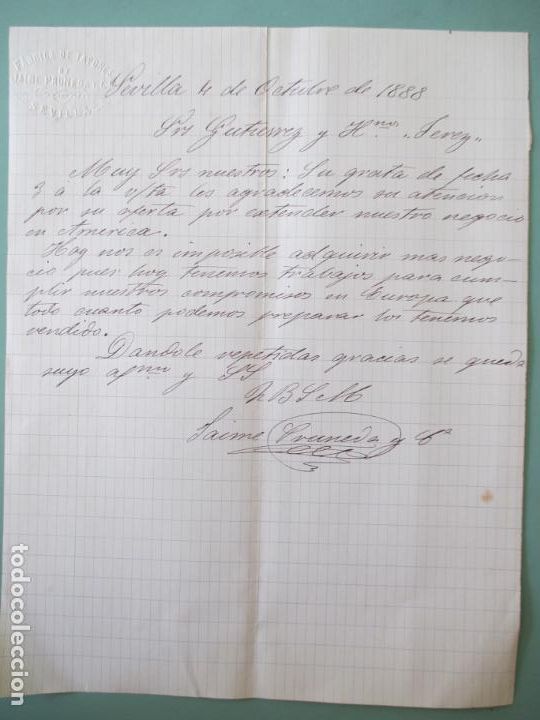 FABRICA DE TAPONES
DE
JAIME PRUNEDA Y Cª
SEVILLA
Sevilla 4 de Octubre de 1888
Srs Gutierrez y Hnos "Jerez"
Muy Srs nuestros: Su grata de fecha
3 a la vista les agradecemos su atencion
por su oferta por extender nuestro negocio
en America.
Hoy nos es imposible adquirir mas nego-
cio pues hoy tenemos trabajos para cum-
plir nuestros compromisos en Europa que
todo cuanto podemos preparar los tenemos
vendido.
Dandole repetidas gracias se queda
suyo afmo y SS
QBSM
Jaime Pruneda y Cª
todocoleccion